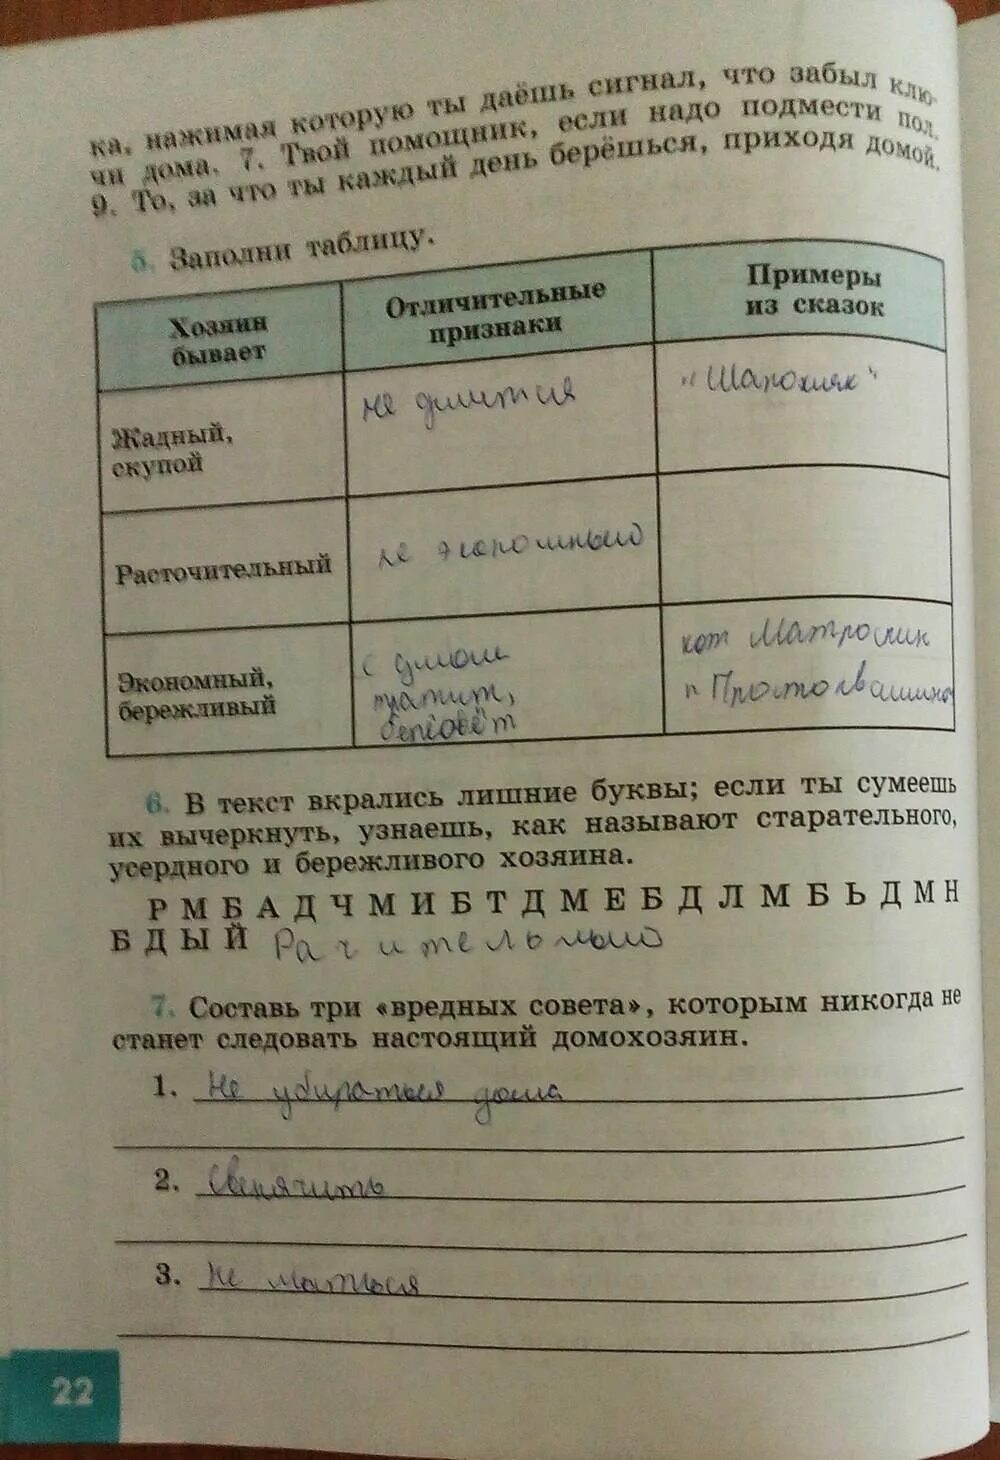 ка, нажимая которую ты даёшь сигнал, что забыл клю-
чи дома. 7. Твой помощник, если надо подмести пол.
9. То, за что ты каждый день берёшься, приходя домой.
5. Заполни таблицу.
Хозяин бывает
Отличительные признаки
Примеры из сказок
Жадный, скупой
не делится
"Шапокляк"
Расточительный
не экономный
Экономный, бережливый
с умом
тратит,
кот Матроскин
Простоквашино
6. В текст вкрались лишние буквы; если ты сумеешь
их вычеркнуть, узнаешь, как называют старательного,
усердного и бережливого хозяина.
Р М Б А Д Ч М И Б Т Д М Е Б Д Л М Б Ь Д М Н
Б Д Ы Й Рачительный
7. Составь три «вредных совета», которым никогда не
станет следовать настоящий домохозяин.
1. Не убираться дома
2.
3. Не мыться
22